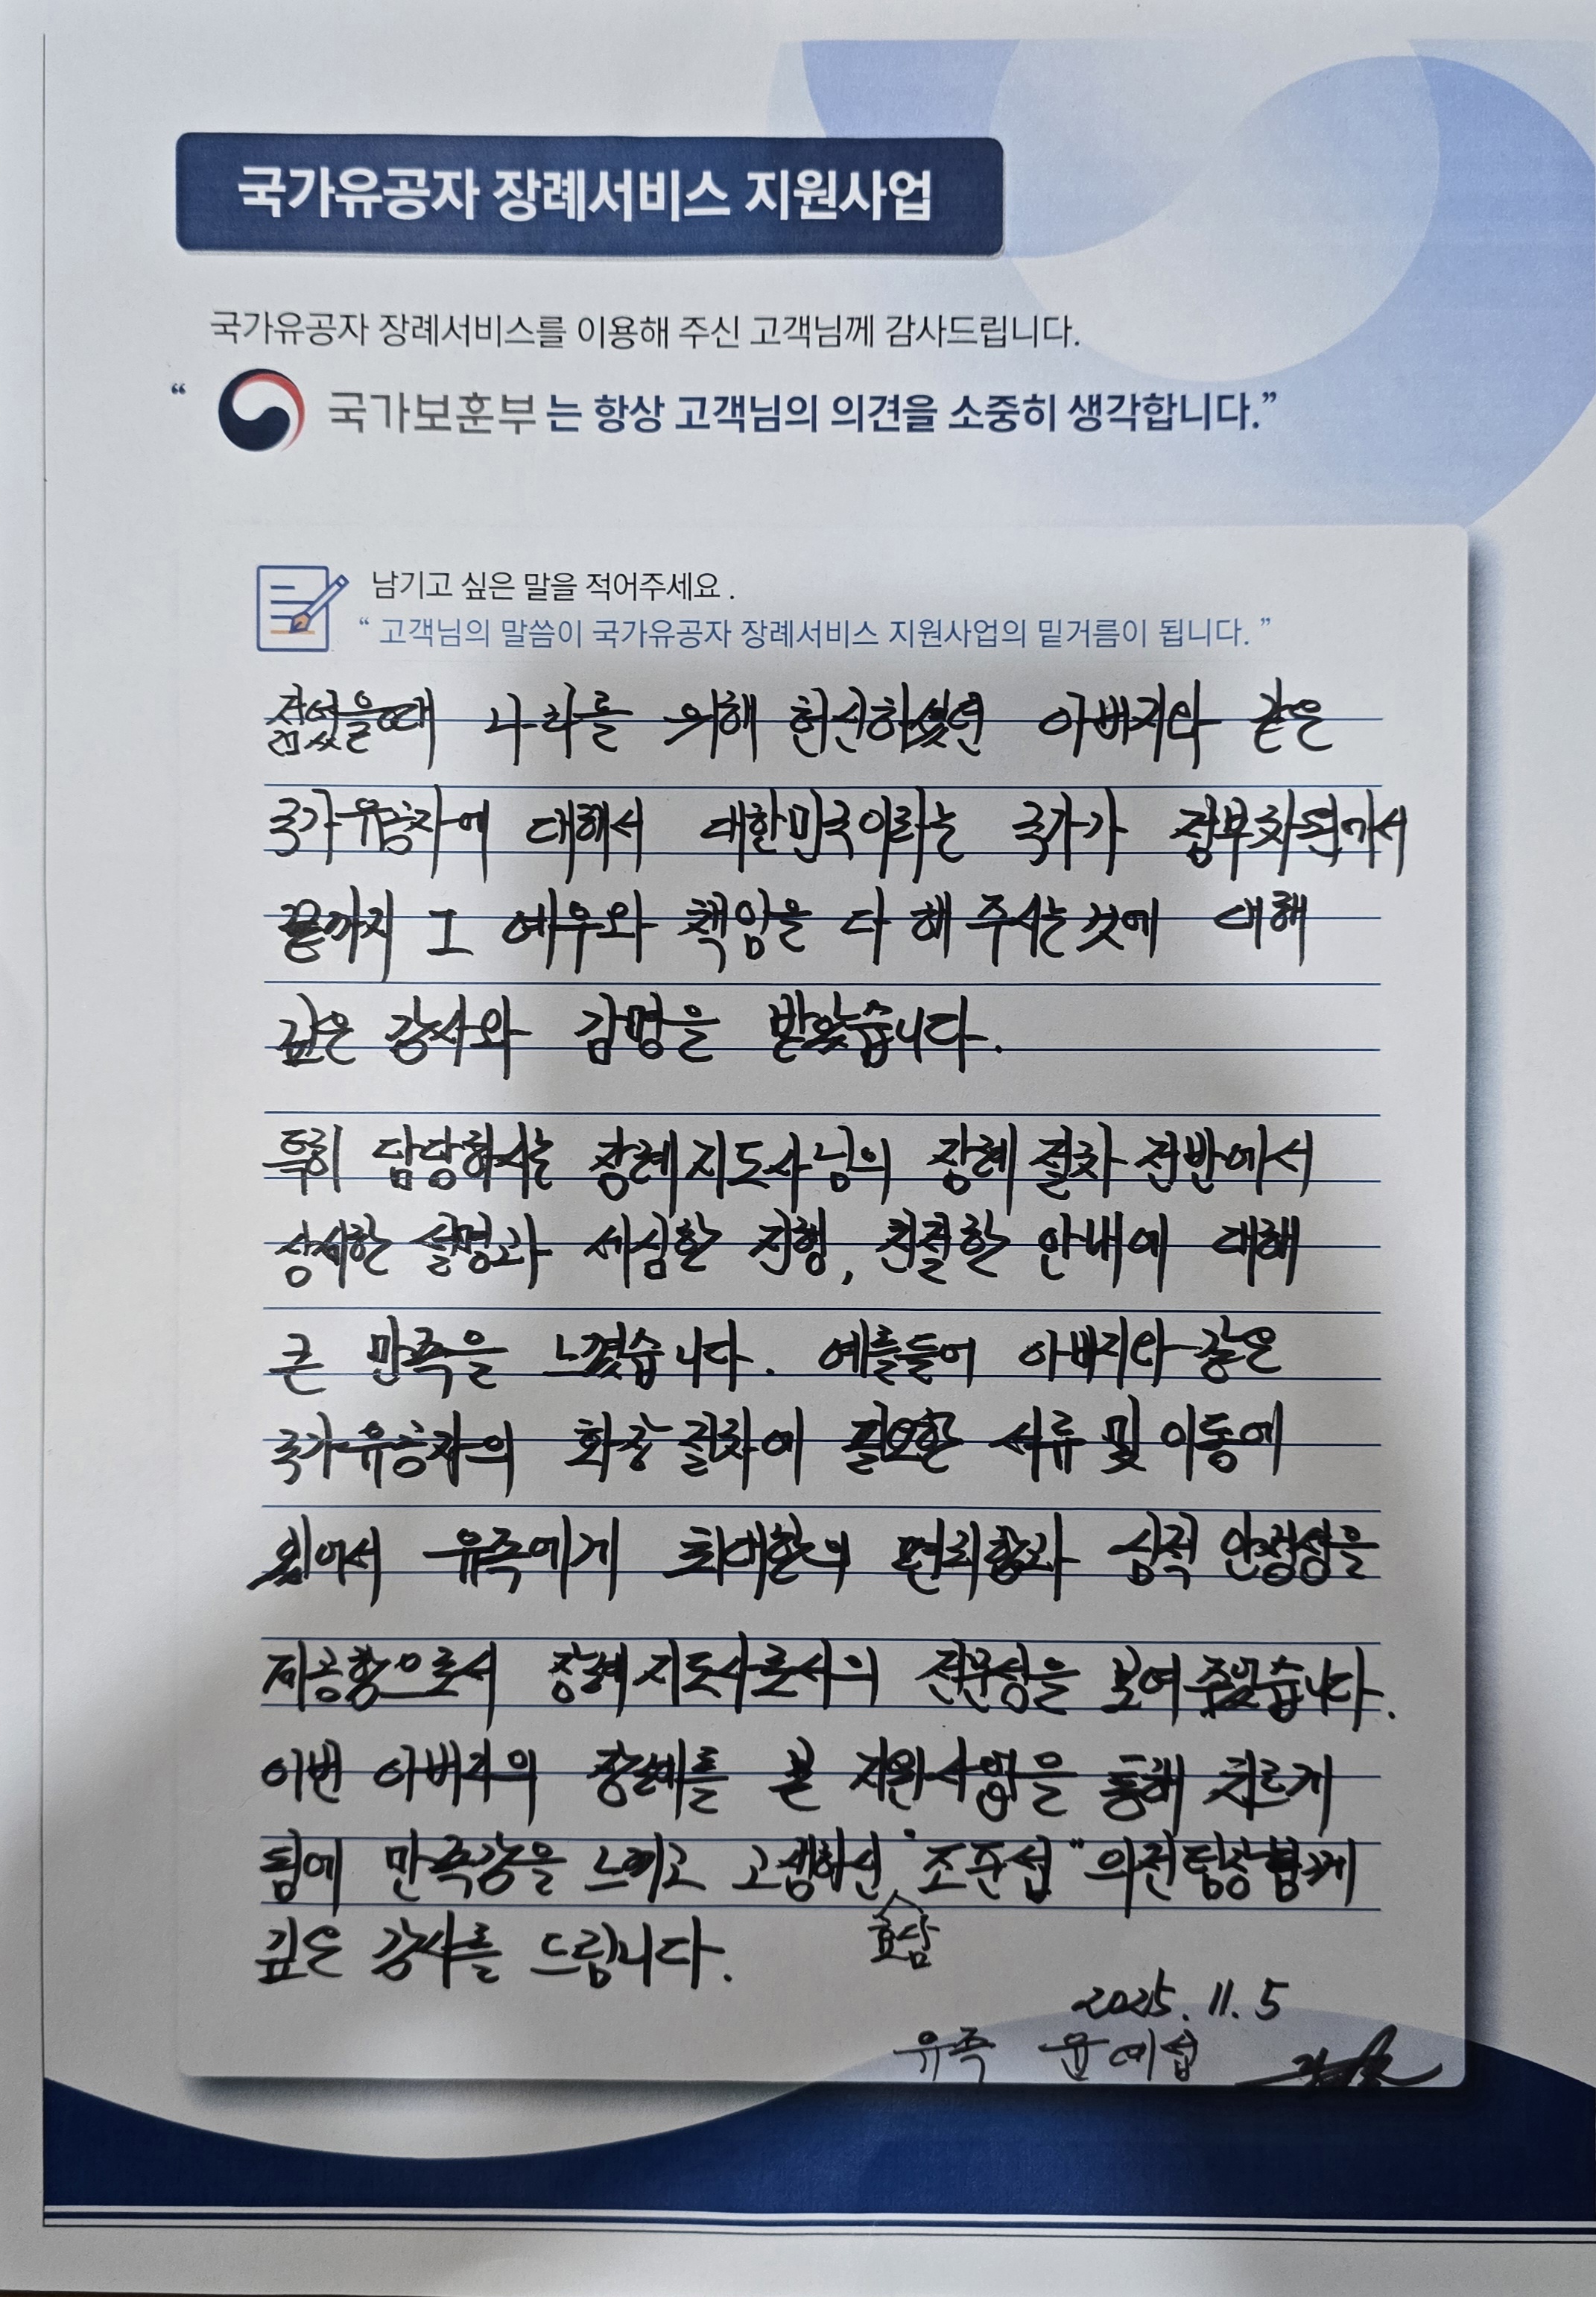 국가유공자 장례서비스 지원사업
국가유공자 장례서비스를 이용해 주신 고객님께 감사드립니다.
“ 국가보훈부 는 항상 고객님의 의견을 소중히 생각합니다.”
남기고 싶은 말을 적어주세요 .
“ 고객님의 말씀이 국가유공자 장례서비스 지원사업의 밑거름이 됩니다. ”
젊었을때 나라를 위해 헌신하셨던 아버지와 같은
국가유공자에 대해서 대한민국이라는 국가가 정부차원에서
끝까지 그 예우와 책임을 다 해 주시는것에 대해
깊은 감사와 감명을 받았습니다.
특히 담당하시는 장례지도사님의 장례 절차 전반에서
상세한 설명과 세심한 진행, 친절한 안내에 대해
큰 만족을 느꼈습니다. 예를들어 아버지와 같은
국가유공자의 화장 절차에 필요한 서류 및 이동에
있어서 유족에게 최대한의 편리함과 심적 안정성을
제공함으로서 장례지도사로서의 전문성을 보여 주었습니다.
이번 아버지의 장례를 본 지원사업을 통해 치르게
됨에 만족감을 느끼고 고생하신 "조준섭" 의전팀장님께
효담
깊은 감사를 드립니다.
2025. 11. 5
유족 윤예섭